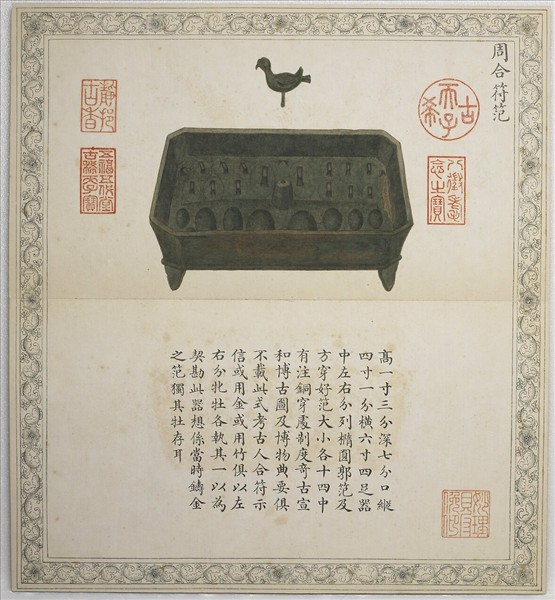 周合符范
古希天子
八徵耄念之寶
五福五代堂古稀天子寶
高一寸三分深七分口縱
四寸一分橫六寸四足器
中左右分列橢圓郭范及
方穿好范大小各十四中
有注銅穿處制度奇古宣
和博古圖及博物典要俱
不載此式考古人合符示
信或用金或用竹俱以左
右分牝牡各執其一以為
契勘此器想係當時鑄金
之范獨其牡存耳